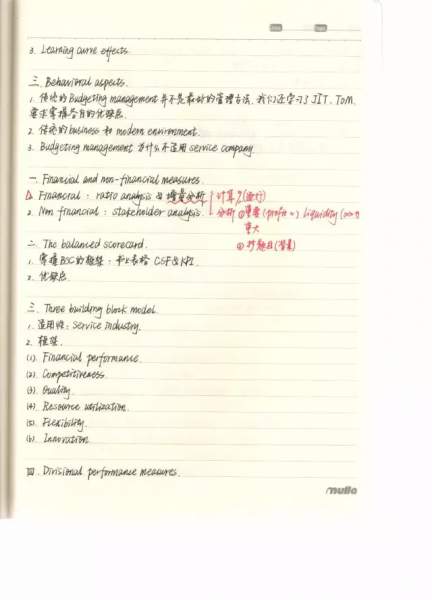 3. Learning curve effects.
三. Behavioral aspects.
1. 传统的 Budgeting management 并不是最好的管理方法. 我们还学习了 JIT. TQM.
要求掌握各自的优缺点.
2. 传统的 business 和 modern environment.
3. Budgeting management 为什么不适用 service company.
一. Financial and non-financial measures.
1. Financial : ratio analysis & 增量分析 计算?(
2. Non financial : stakeholder analysis. 分析 ① (profit liquidity
② 抄题目(背景)
二. The balanced scorecard.
1. 掌握 BSC 的 : CSF & KPI.
2. 优缺点.
三. Three building block model.
1. 适用性: Service industry.
2.
(1). Financial performance.
(2). Competitiveness.
(3). Quality.
(4). Resource utilization.
(5). Flexibility.
(6). Innovation.
四. Divisional performance measures.